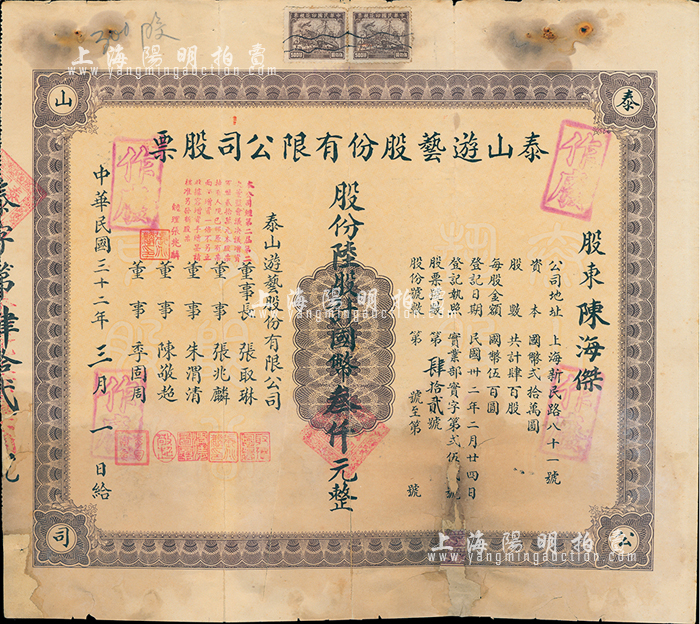 300 股
泰
山
公
司
泰山遊藝股份有限公司股票
股東 陳海傑
公司地址 上海新民路八十一號
資本 國幣弍拾萬圓
股數 共計肆百股
每股金額 國幣伍百圓
登記日期 民國卅二年二月廿四日
登記執照 實業部實字第弍伍號
股票號數 第肆拾貳號
股份號數 第 號至第 號
股份陸股計國幣叁仟元整
泰山遊藝股份有限公司
董事長 張取琳
董事 張兆麟
董事 朱渭清
董事 陳敬超
董事 季固周
中華民國三十二年三月一日給
作廢
作廢
作廢
作廢
泰字第肆拾貳號
上海陽明拍賣
www.yangmingauction.com
上海陽明拍賣
www.yangmingauction.com
上海陽明拍賣
www.yangmingauction.com